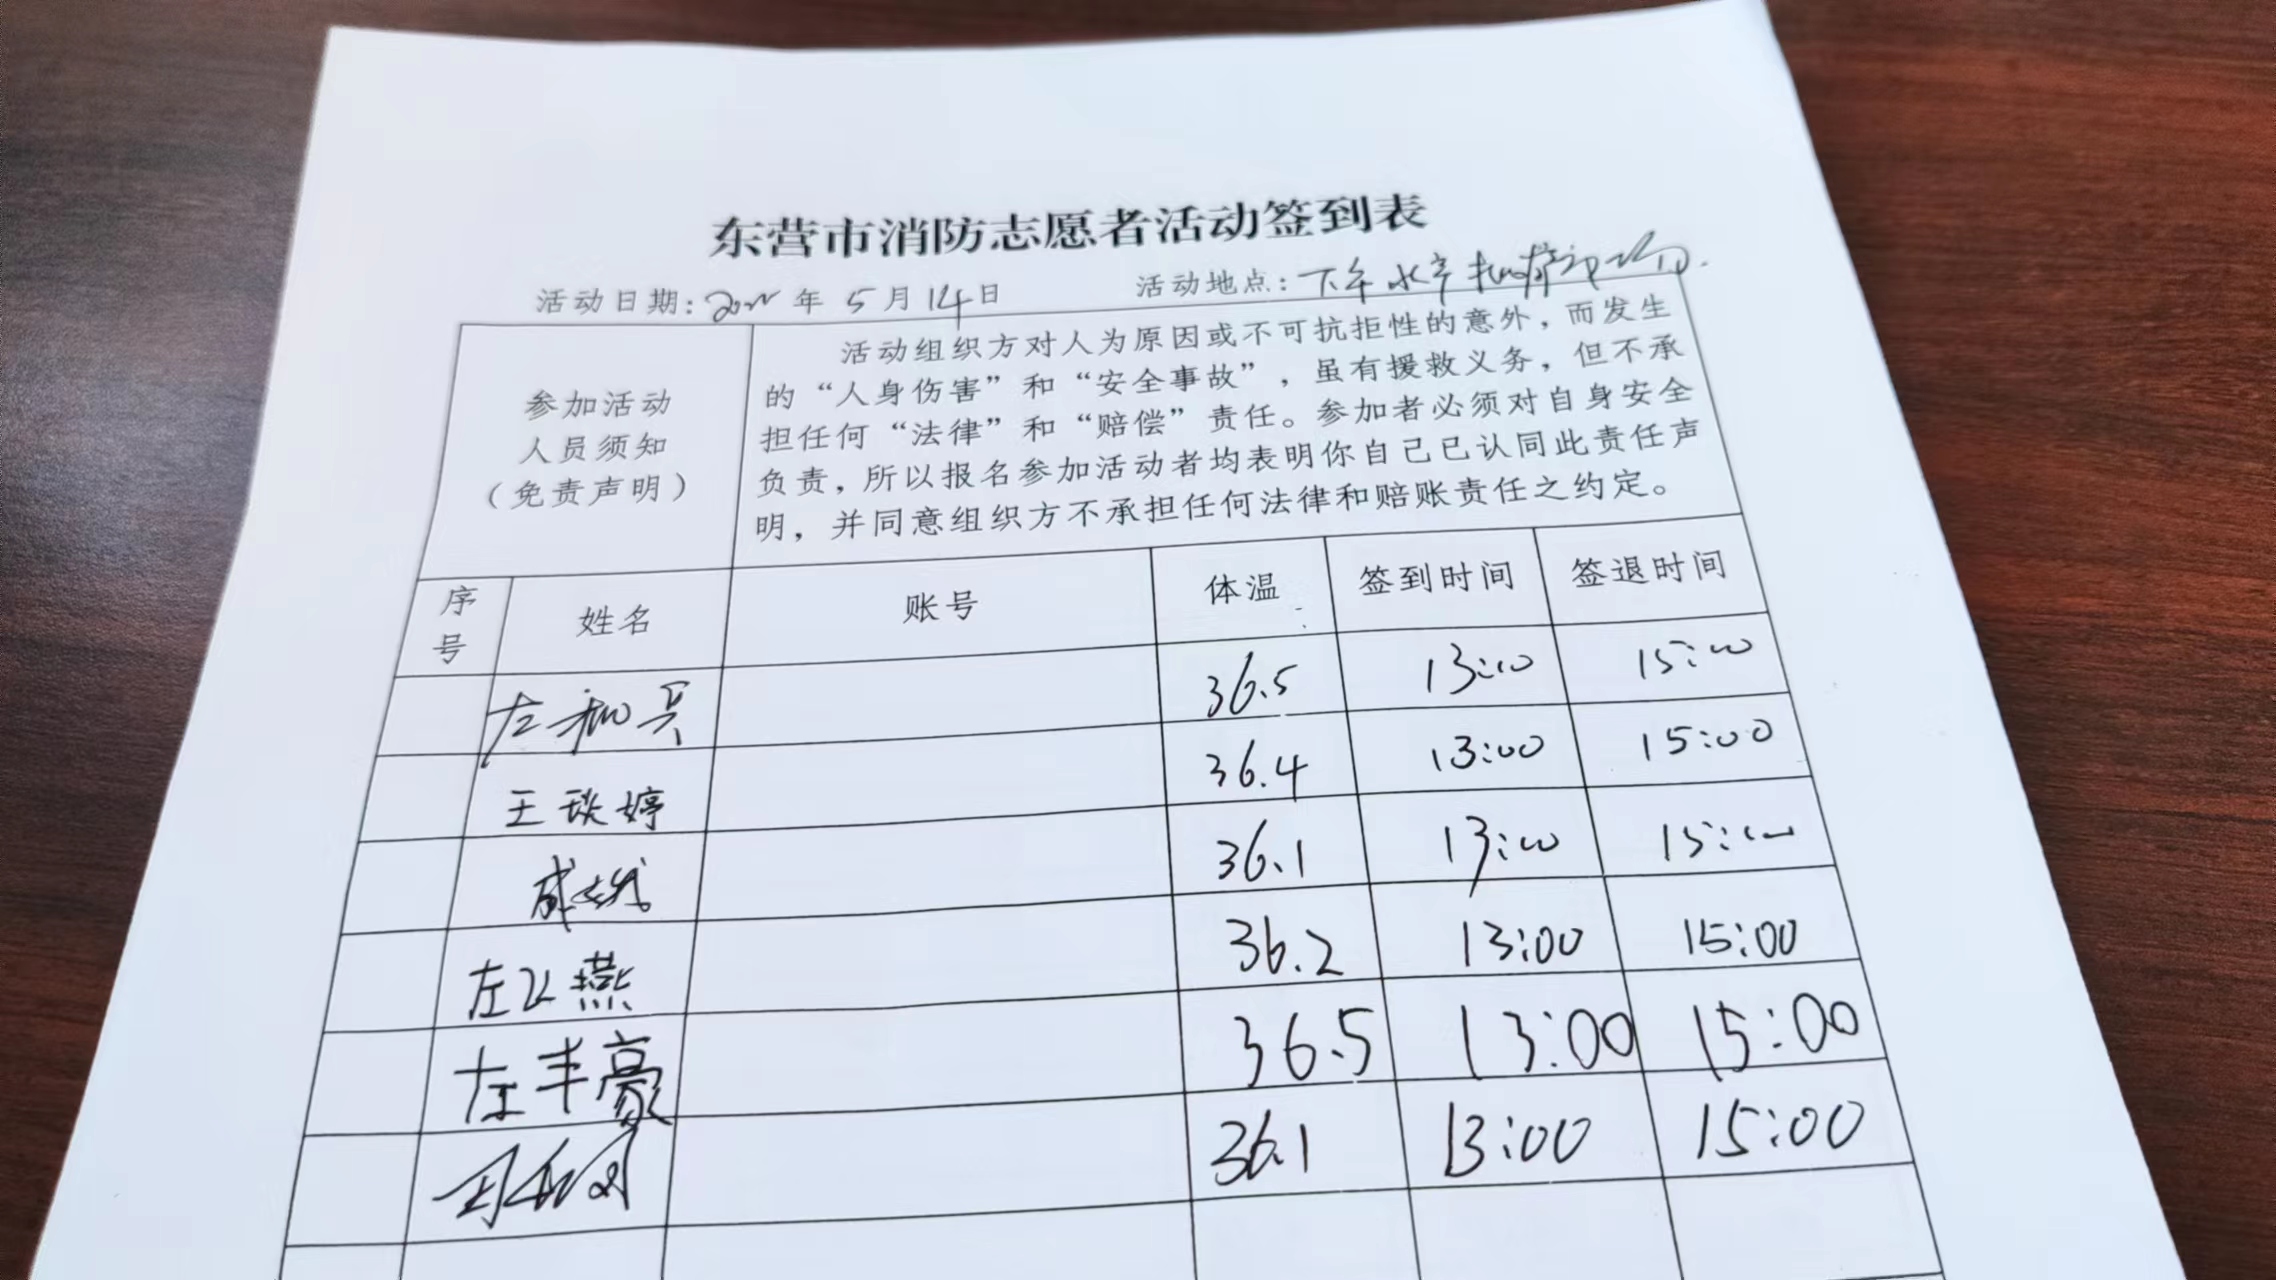 东营市消防志愿者活动签到表
活动日期: 2022 年 5 月 14 日 活动地点: 下午
参加活动
人员须知
（免责声明）
活动组织方对人为原因或不可抗拒性的意外，而发生
的“人身伤害”和“安全事故”，虽有援救义务，但不承
担任何“法律”和“赔偿”责任。参加者必须对自身安全
负责，所以报名参加活动者均表明你自己已认同此责任声
明，并同意组织方不承担任何法律和赔账责任之约定。
序号 姓名 账号 体温 签到时间 签退时间
左和兵 36.5 13:00 15:00
王琰婷 36.4 13:00 15:00
36.1 13:00 15:00
左飞燕 36.2 13:00 15:00
左丰豪 36.5 13:00 15:00
36.1 13:00 15:00